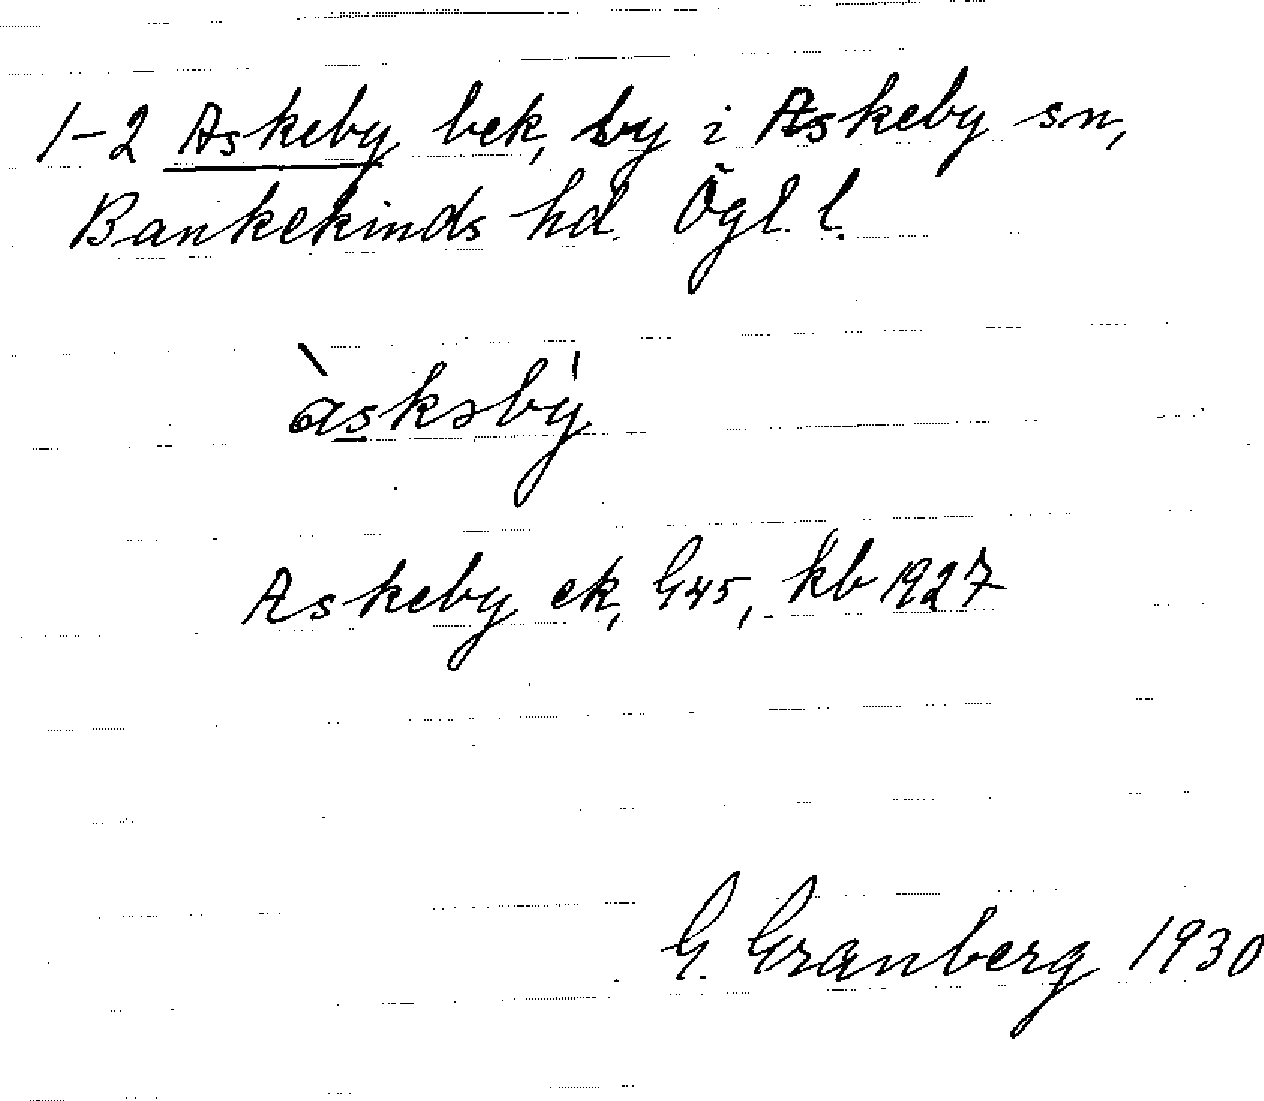 1-2 Askeby bek, by i Askeby sn,
Bankekinds hd. Ögl. l.
àskəbý
Askeby ek, G45, kb 1927
G. Granberg 1930